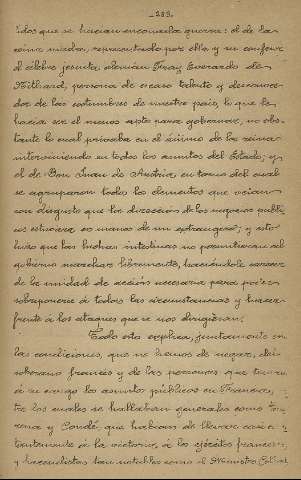 -233-
tidos que se hacian encarnada guerra: el de la
reina madre, representado por ella y su confesor
el célebre jesuita alemán Fray Everardo de
Nithard, persona de escaso talento y desconoce-
dor de las costumbres de nuestro pais, lo que le
hacia ser el menos apto para gobernar, no obs-
tante lo cual privaba en el ánimo de la reina
interviniendo en todos los asuntos del Estado; y
el de Don Juan de Austria, en torno del cual
se agruparon todos los elementos que veian
con disgusto que la dirección de los negocios públi-
cos estuviera en manos de un extrangero; y esto
hizo que las luchas intestinas no permitieran al
gobierno marchar libremente, haciéndole carecer
de la unidad de acción necesaria para poder
sobreponerse á todas las circunstancias y hacer
frente á los ataques que se nos dirigieran.
Todo esto explica, juntamente con
las condiciones, que no hemos de negar, del
soberano francés y de las personas que tenia
á su cargo los asuntos públicos en Francia,
tre los cuales se hallaban generales como Tu-
rena y Condé, que habian de llevar casi cons-
tantemente á la victoria, á los ejércitos franceses,
y hacendistas tan notables como el Ministro Colbert